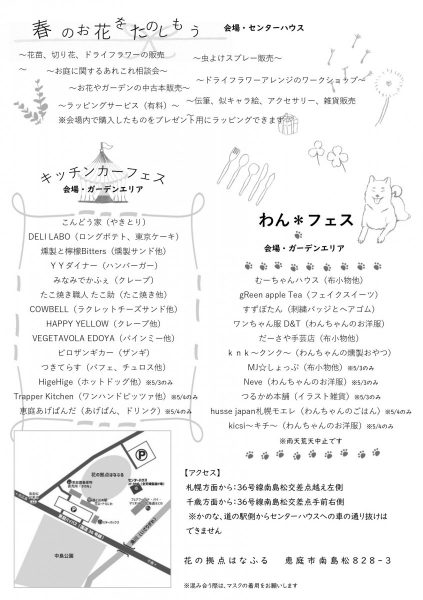 春のお花をたのしもう
会場・センターハウス
～花苗、切り花、ドライフラワーの販売～
～虫よけスプレー販売～
～お庭に関するあれこれ相談会～
～ドライフラワーアレンジのワークショップ～
～お花やガーデンの中古本販売～
～ラッピングサービス（有料）～
～伝筆、似キャラ絵、アクセサリー、雑貨販売
※会場内で購入したものをプレゼント用にラッピングできます
キッチンカーフェス
会場・ガーデンエリア
こんどう家（やきとり）
DELI LABO（ロングポテト、東京ケーキ）
燻製と檸檬Bitters（燻製サンド他）
ＹＹダイナー（ハンバーガー）
みなみでかふぇ（クレープ）
たこ焼き職人 たこ助（たこ焼き他）
COWBELL（ラクレットチーズサンド他）
HAPPY YELLOW（クレープ他）
VEGETAVOLA EDOYA（バインミー他）
ピロザンギカー（ザンギ）
つきてらす（パフェ、チュロス他）
HigeHige（ホットドッグ他）※5/3のみ
Trapper Kitchen（ワンハンドピッツァ他）※5/4のみ
恵庭あげぱんだ（あげぱん、ドリンク）※5/4のみ
わん＊フェス
会場・ガーデンエリア
むーちゃんハウス（布小物他）
gReen apple Tea（フェイクスイーツ）
すずぽたん（刺繍バッジとヘアゴム）
ワンちゃん服 D&T（わんちゃんのお洋服）
だーさや手芸店（布小物他）
ｋｎｋ～クンク～（わんちゃんの燻製おやつ）
MJ☆しょっぷ（布小物他）※5/3のみ
Neve（わんちゃんのお洋服）※5/3のみ
つるかめ本舗（イラスト雑貨）※5/3のみ
husse japan札幌モエレ（わんちゃんのごはん）※5/4のみ
kicsi～キチ～（わんちゃんのお洋服）※5/4のみ
※雨天荒天中止です
P
花の拠点はなふる
センターハウス
P
中島公園
【アクセス】
札幌方面から：36号線南島松交差点越え左側
千歳方面から：36号線南島松交差点手前右側
※かのな、道の駅側からセンターハウスへの車の通り抜けは
できません
花の拠点はなふる　恵庭市南島松８２８−３
※混み合う際は、マスクの着用をお願いします